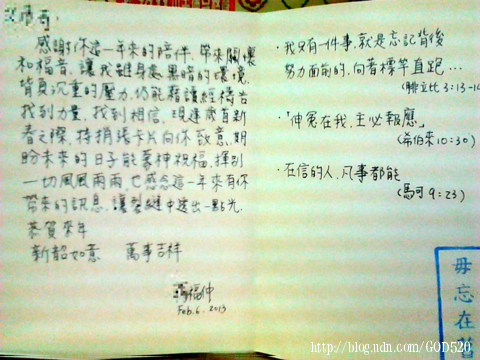 感謝你這一年來的陪伴，帶來關懷
和福音，讓我雖身處黑暗的環境，
背負沉重的壓力，仍能藉讀經禱告
找到力量，找到相信，現逢歲首新
春之際，特捎張卡片向你致意，期
盼未來的日子能蒙神祝福，揮別
一切風風雨雨，也感念這一年來有你
帶來的訊息，讓裂縫中透出一點光。
恭賀來年
新韶如意 萬事吉祥
福仲
Feb. 6. 2013
・我只有一件事，就是忘記背後
努力面前的，向著標竿直跑…
(腓立比 3:13-14
・「伸冤在我，主必報應」
(希伯來 10:30)
・在信的人，凡事都能
(馬可 9:23)
毋忘在
http://blog.udn.com/GOD520